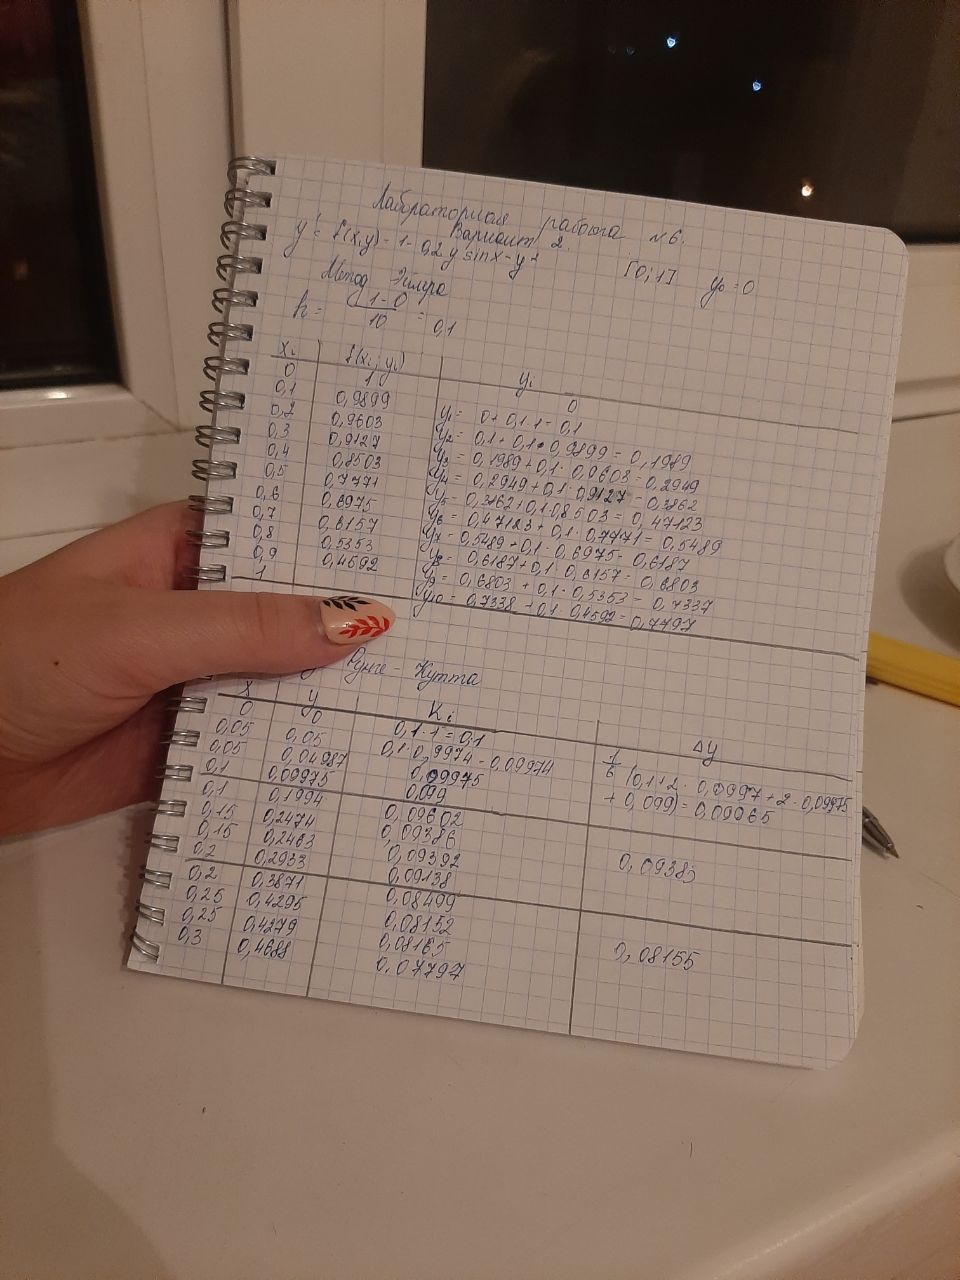 Лабораторная работа №6.
Вариант 2
y' = f(x,y) = 1 - 0,2 y sinx - y² [0;1] y₀ = 0
Метод Эйлера
h = (1-0)/10 = 0,1
xᵢ f(xᵢ; yᵢ) yᵢ
0 1 0
0,1 0,9899 y₁ = 0 + 0,1·1 = 0,1
0,2 0,9603 y₂ = 0,1 + 0,1·0,9899 = 0,1989
0,3 0,9127 y₃ = 0,1989 + 0,1·0,9603 = 0,2949
0,4 0,8503 y₄ = 0,2949 + 0,1·0,9127 = 0,3862
0,5 0,7771 y₅ = 0,3862 + 0,1·0,8503 = 0,47123
0,6 0,6975 y₆ = 0,47123 + 0,1·0,7771 = 0,5489
0,7 0,6157 y₇ = 0,5489 + 0,1·0,6975 = 0,6187
0,8 0,5353 y₈ = 0,6187 + 0,1·0,6157 = 0,6803
0,9 0,4592 y₉ = 0,6803 + 0,1·0,5353 = 0,7337
1 y₁₀ = 0,7338 + 0,1·0,4592 = 0,7797
Рунге - Кутта
x y Kᵢ Δy
0 0 0,1·1 = 0,1
0,05 0,05 0,1·0,9974 = 0,09974 1/6 (0,1 + 2·0,0997 + 2·0,09975
0,05 0,04987 0,09975 + 0,099) = 0,09965
0,1 0,09975 0,099
0,1 0,1994 0,09602
0,15 0,2474 0,09386 0,09383
0,15 0,2463 0,09392
0,2 0,2933 0,09138
0,2 0,3871 0,08499
0,25 0,4295 0,08152 0,08155
0,25 0,4279 0,08165
0,3 0,4688 0,07797